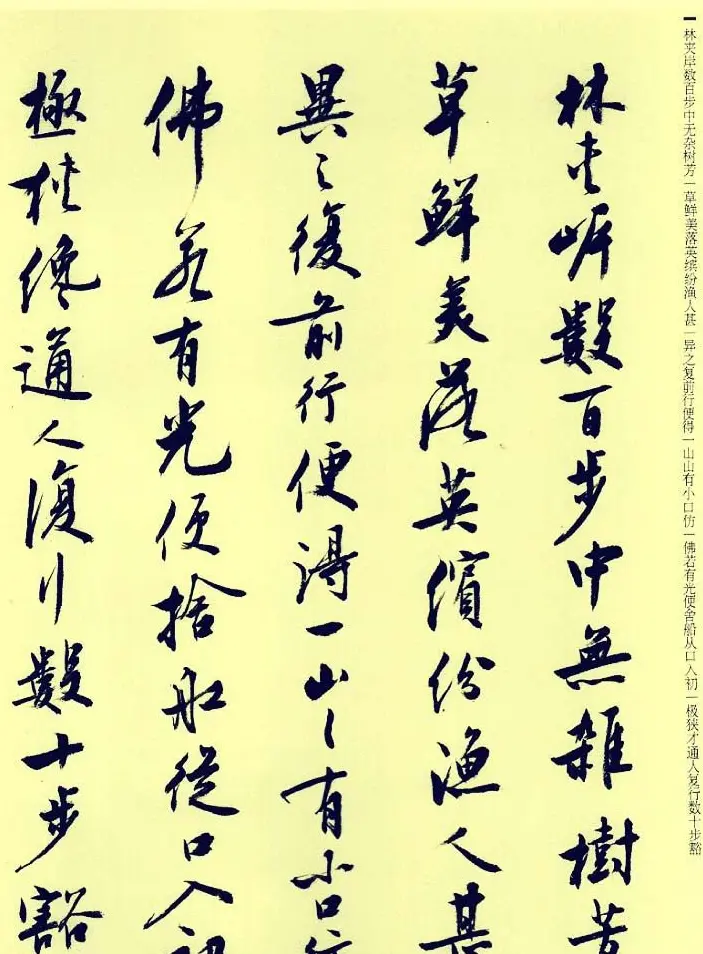 林夹岸数百步中无杂树芳一草鲜美落英缤纷渔人甚一异之复前行便得一山山有小口仿一佛若有光便舍船从口入初一极狭才通人复行数十步豁
林夾岸數百步中無雜樹芳
草鮮美落英繽紛漁人甚
異之復前行便得一山山有小口彷
佛若有光便捨船從口入初
極狹纔通人復行數十步豁